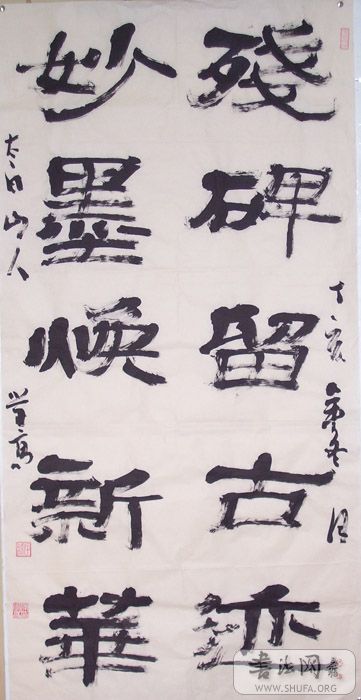 殘碑留古跡
丁亥年冬月
妙墨煥新華
太白山人
書法网
WWW.SHUFA.ORG